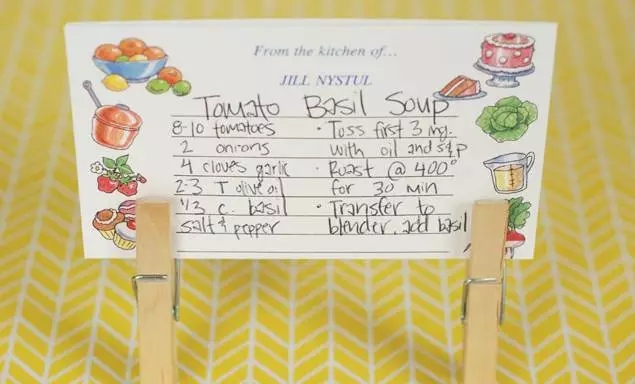 From the kitchen of...
JILL NYSTUL
Tomato Basil Soup
8-10 tomatoes
2 onions
4 cloves garlic
2-3 T olive oil
1/3 c. basil
salt & pepper
· Toss first 3 ing.
with oil and s&p
· Roast @ 400°
for 30 min
· Transfer to
blender, add basil